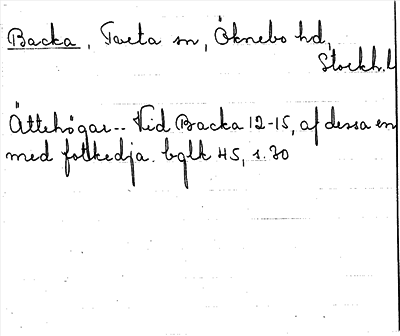 Backa, Taeta sn, Öknebo hd,
Stockh. L
Ättehögar-- Vid Backa 12-15, af dessa en
med fotkedja. bglk 45, s. 30